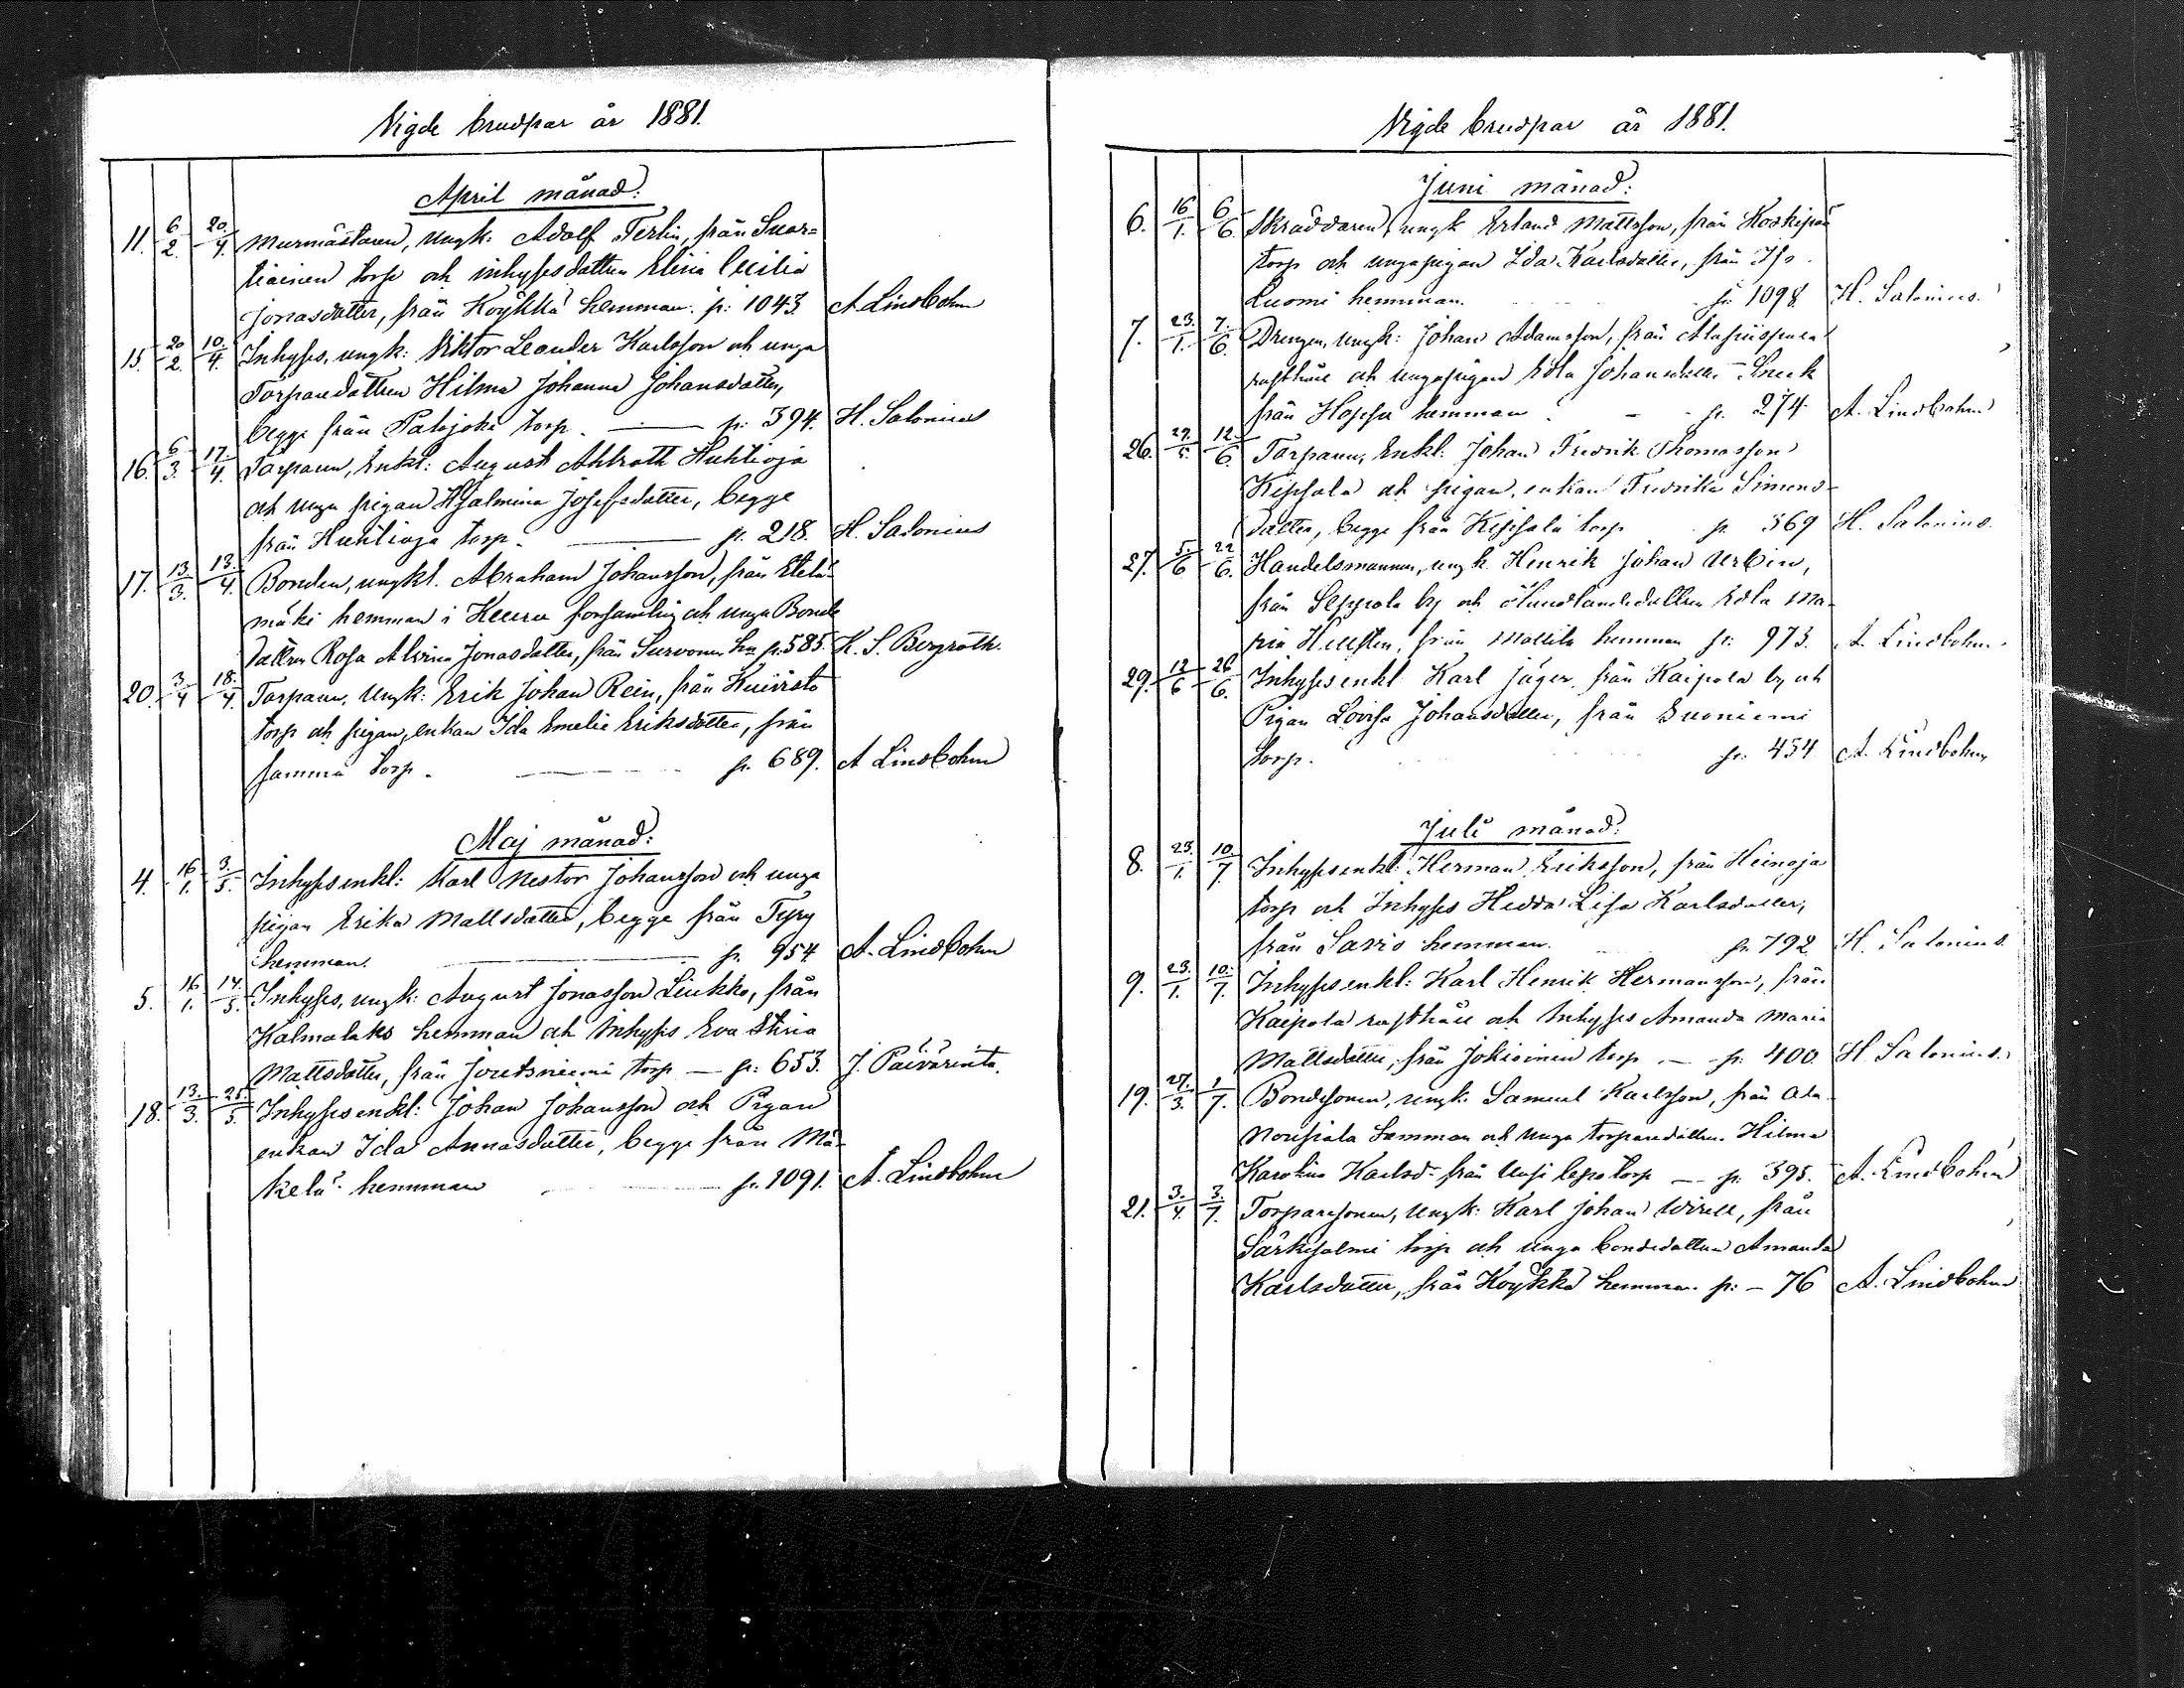 Vigde brudpar år 1881.
April månad:
11. 6/2. 20./4. Murmästaren, ungk: Adolf Terlin, från Suar=
tiainen torp och inhysesdattren Elina Cecilia
Jonasdatter, från Köykkä hemman. p: 1043. A Lindbohm
15. 20/2. 10./4. Inhyses, ungk: Viktor Leander Karlsson och unga
Torparedattren Hilma Johanna Johansdatter,
begge från Palojoki torp. — p: 394. H. Salonius
16. 6/3. 17./4. Torparen, Enkl: August Ahlroth Huhtioja
och unga pigan Hjalmina Josefsdatter, begge
från Huhtioja torp. — p. 218. H. Salonius
17. 13/3. 13./4. Bonden, ungkl. Abraham Johansson, från Etelä-
mäki hemman i Keuru församling och unga Bonde
dattren Rosa Alvina Jonasdatter, från Survonen hn p. 585. K. S. Bergroth.
20. 3/4 18./4 Torparen, Ungk: Erik Johan Rein, från Kuivisto
torp och pigan, enkan Ida Emelie Eriksdatter, från
samma torp. — p. 689. A Lindbohm
Maj månad:
4. 16/1. 3/5. Inhyses enkl: Karl Nestor Johansson och unga
pigan Erika Mattsdatter, begge från Tyry
hemman. — p. 954 A. Lindbohm
5. 16/1. 14./5. Inhyses, ungk: August Jonasson Liukko, från
Kalmalaks hemman och Inhyses Eva Stina
Mattsdatter, från Joutsniemi torp — p: 653. J. Päivärinta.
18. 13./3. 25./5. Inhyses enkl: Johan Johansson och Pigan
enkan Ida Annasdatter, begge från Mä-
kelä hemman — p. 1091. A. Lindbohm
Vigde brudpar år 1881.
Juni månad:
6. 16/1. 6/6. Skräddaren, ungk Erland Mattsson, från Koskipää
torp och ungapigan Ida Karlsdatter, från Iso
Luomi hemman. p: 1098. H. Salonius.
7. 23./1. 7./6. Drengen, ungk: Johan Adamsson, från Alapiispala
rusthåll och ungapigan Edla Johansdatter Sneck
från Hoppu hemman. - - p. 274. A. Lindbohm
26. 29./5. 12./6. Torparen, Enkl: Johan Fredrik Thomasson
Kippola och pigan, enkan Fredrika Simons-
datter, begge från Kippola torp p. 369 H. Salonius.
27. 5./6 22/6. Handelsmannen, ungk. Henrik Johan Urbin,
från Seppola by och Ma-
ria Hellsten, från Mattila hemman p: 973. A. Lindbohm.
29. 12/6 26/6. Inhyses enkl: Karl Jäger, från Kaipola by och
Pigan Lovisa Johansdatter, från Suoniemi
torp. p: 454 A. Lindbohm
Juli månad:
8. 23./1. 10./7. Inhyses enkl: Herman Eriksson, från Heinoja
torp och Inhyses Hedda Lisa Karlsdatter,
från Sario hemman. p. 792. H. Salonius.
9. 23./1. 10./7. Inhyses enkl: Karl Henrik Hermansson, från
Kaipola rusthåll och Inhyses Amanda Maria
Mattsdatter, från Jokioinen torp — p: 400. H. Salonius.
19. 27./3. 1/7. Bondesonen, ungk: Samuel Karlsson, från Ala
Nousiala hemman och unga torparedattren Hilma
Karolina Karlsd. från Uusi lepo torp — p: 395. A. Lindbohm
21. 3./4. 3./7. Torparesonen, Ungk: Karl Johan Wirell, från
Särkisalmi torp och unga bondedattren Amanda
Karlsdatter, från Köykkä hemman p: – 76 A. Lindbohm